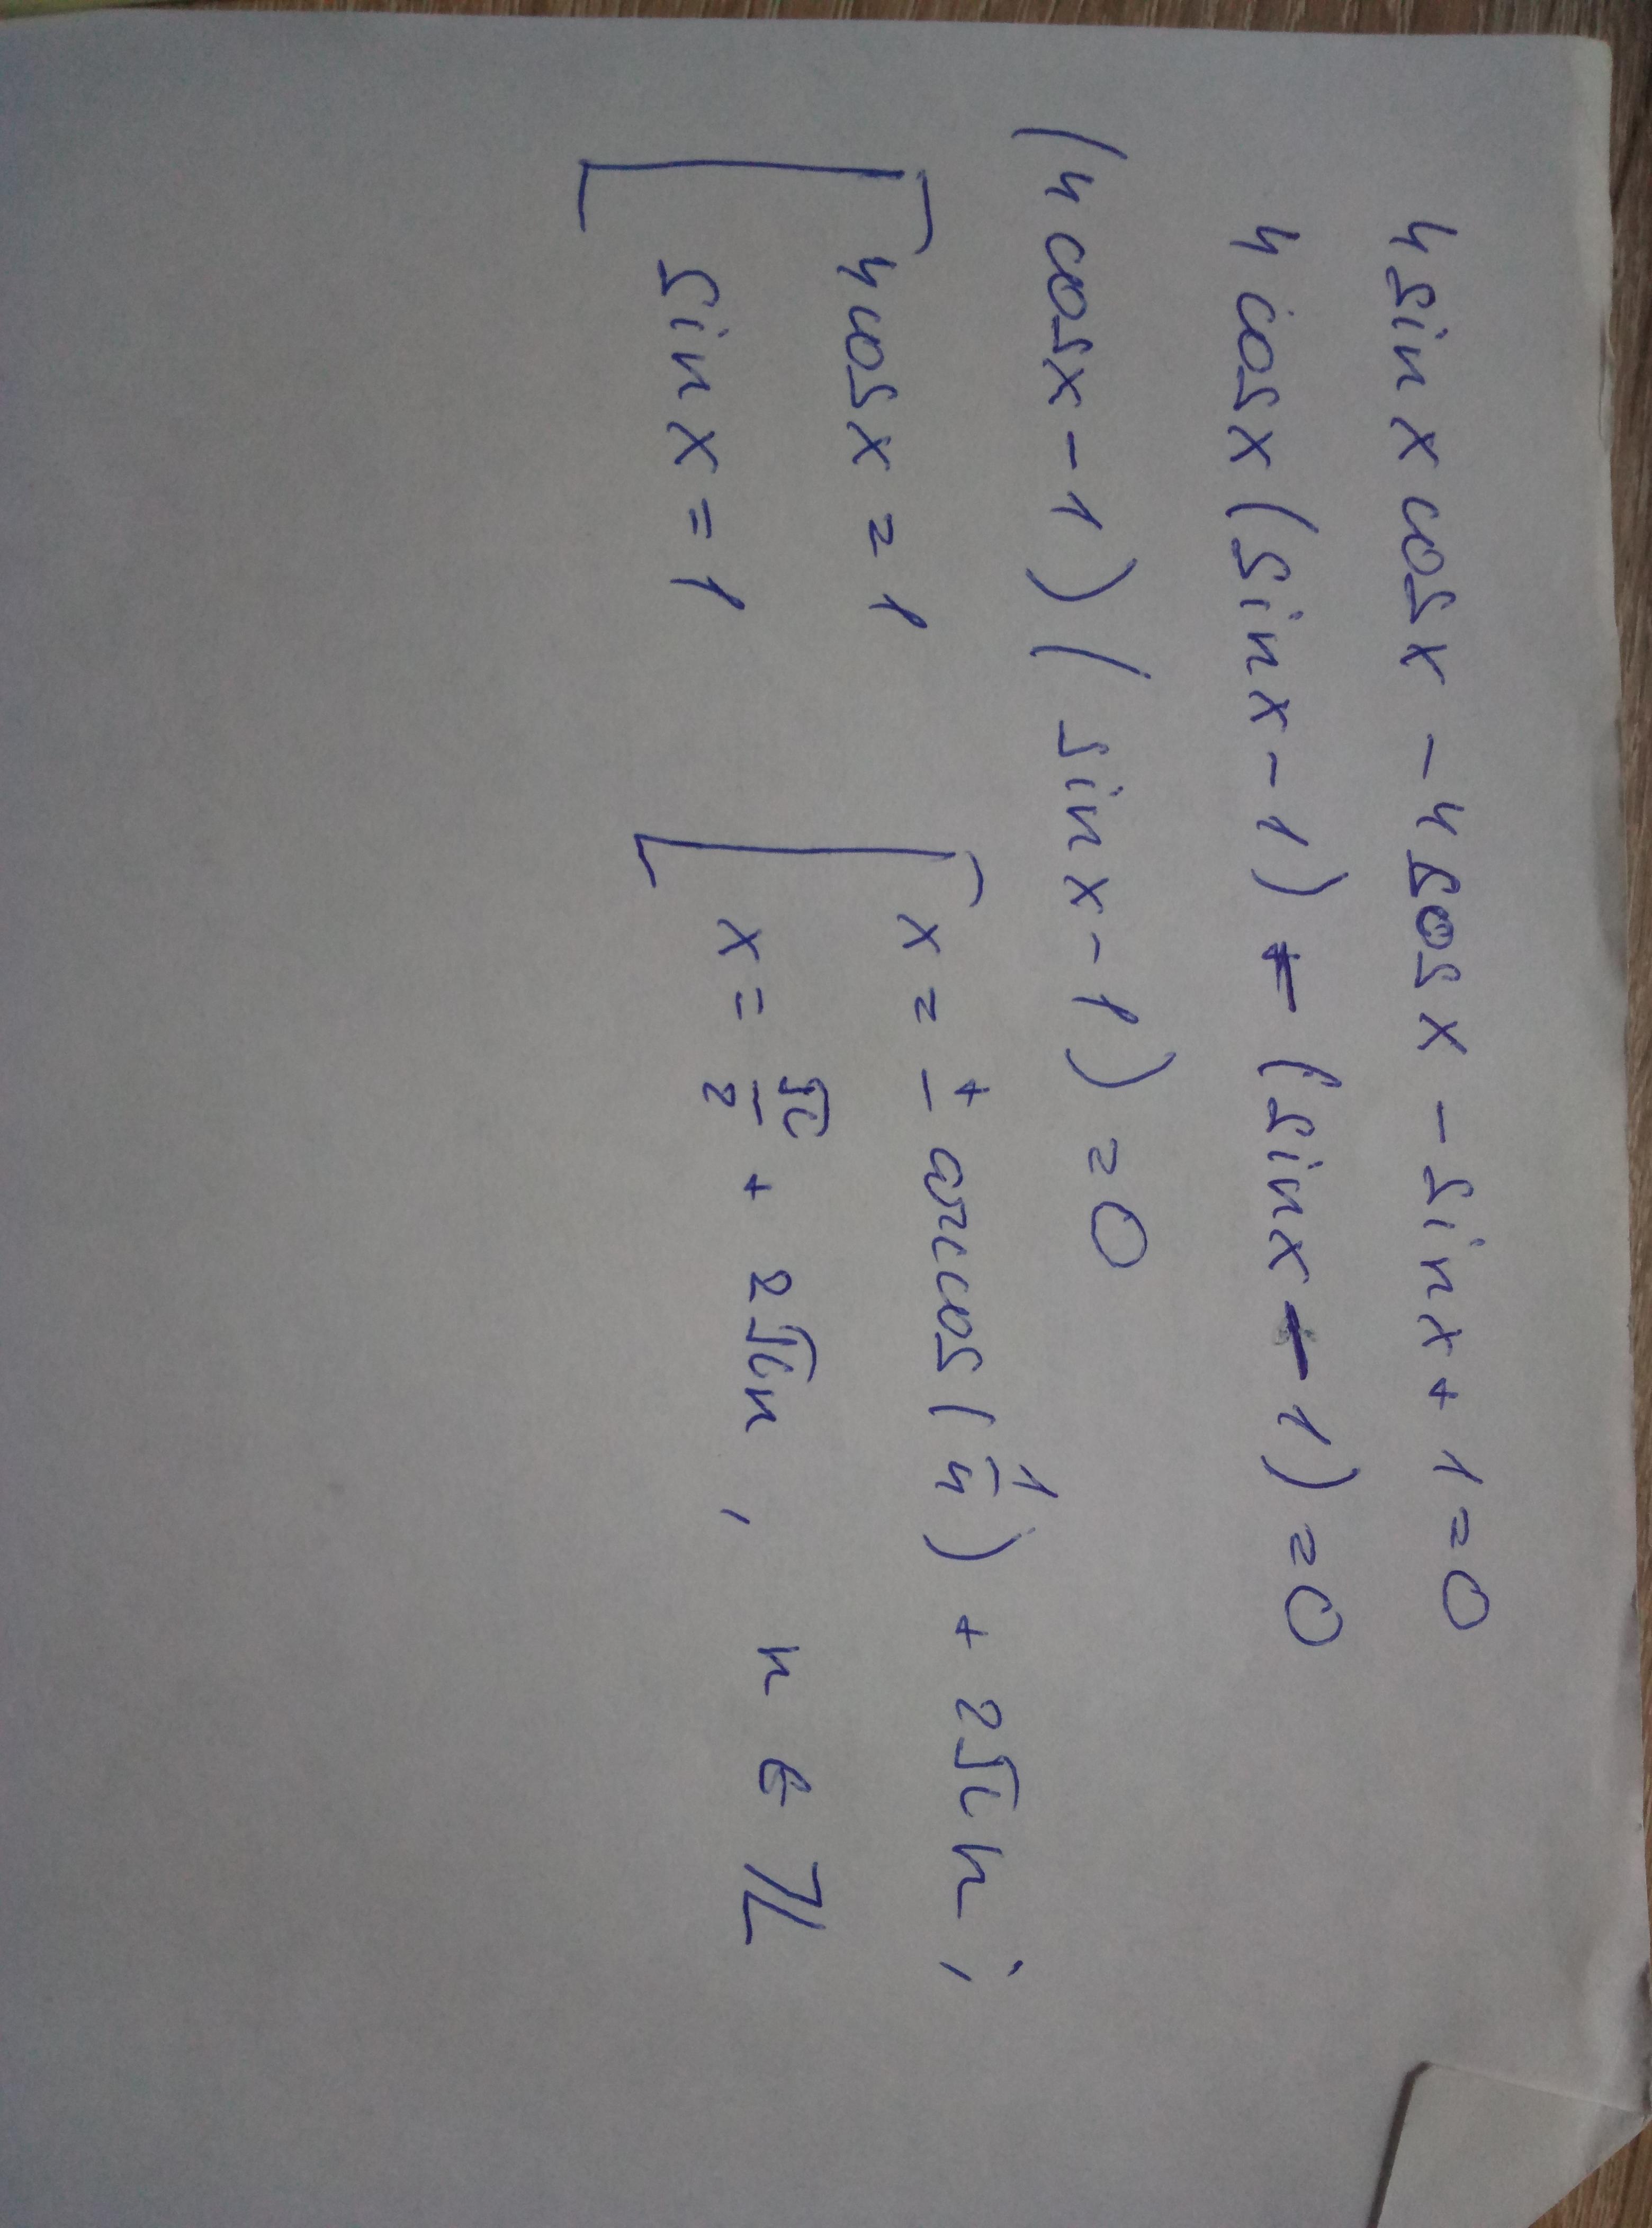 4sin x cos x - 4cos x - sin x + 1 = 0
4 cos x (sin x - 1) - (sin x - 1) = 0
(4 cos x - 1) (sin x - 1) = 0
[ 4cos x = 1 [ x = ± arccos(1/4) + 2πn;
sin x = 1 x = π/2 + 2πn, n ∈ ℤ